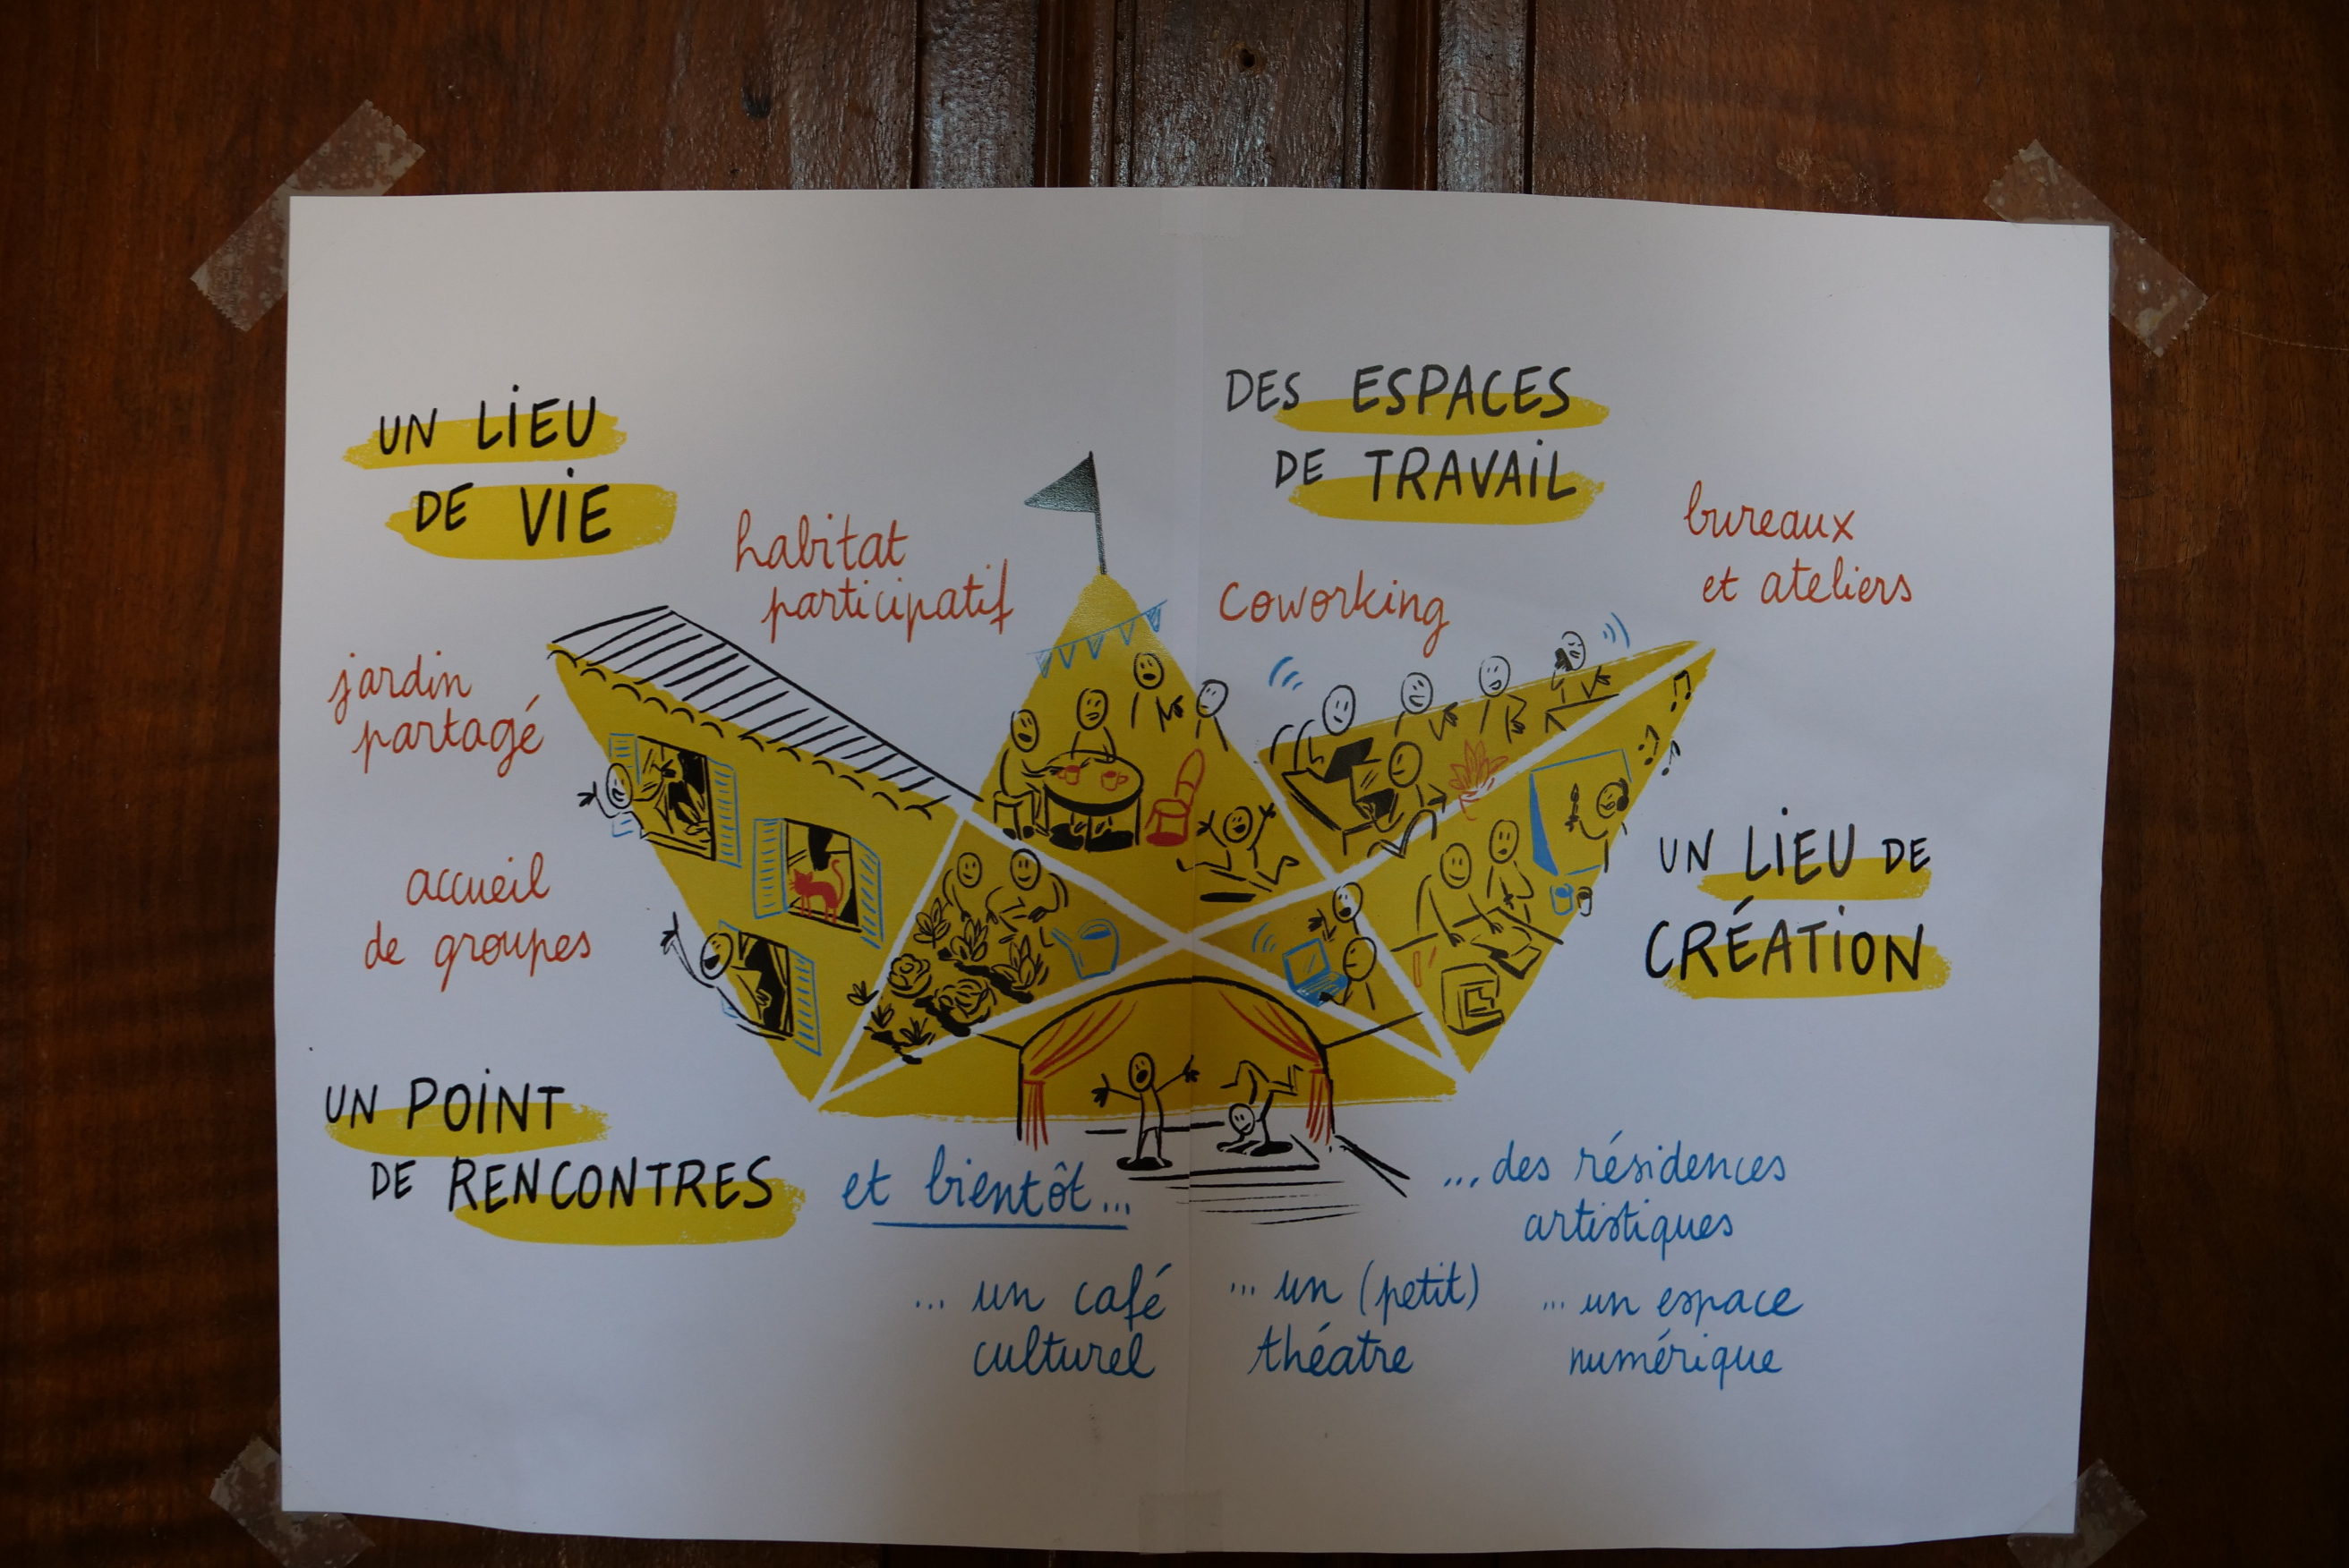 UN LIEU
DE VIE
habitat
participatif
jardin
partagé
accueil
de groupes
DES ESPACES
DE TRAVAIL
bureaux
et ateliers
coworking
UN LIEU DE
CRÉATION
UN POINT
DE RENCONTRES
et bientôt...
...des résidences
artistiques
... un café
culturel
... un (petit)
théatre
... un espace
numérique